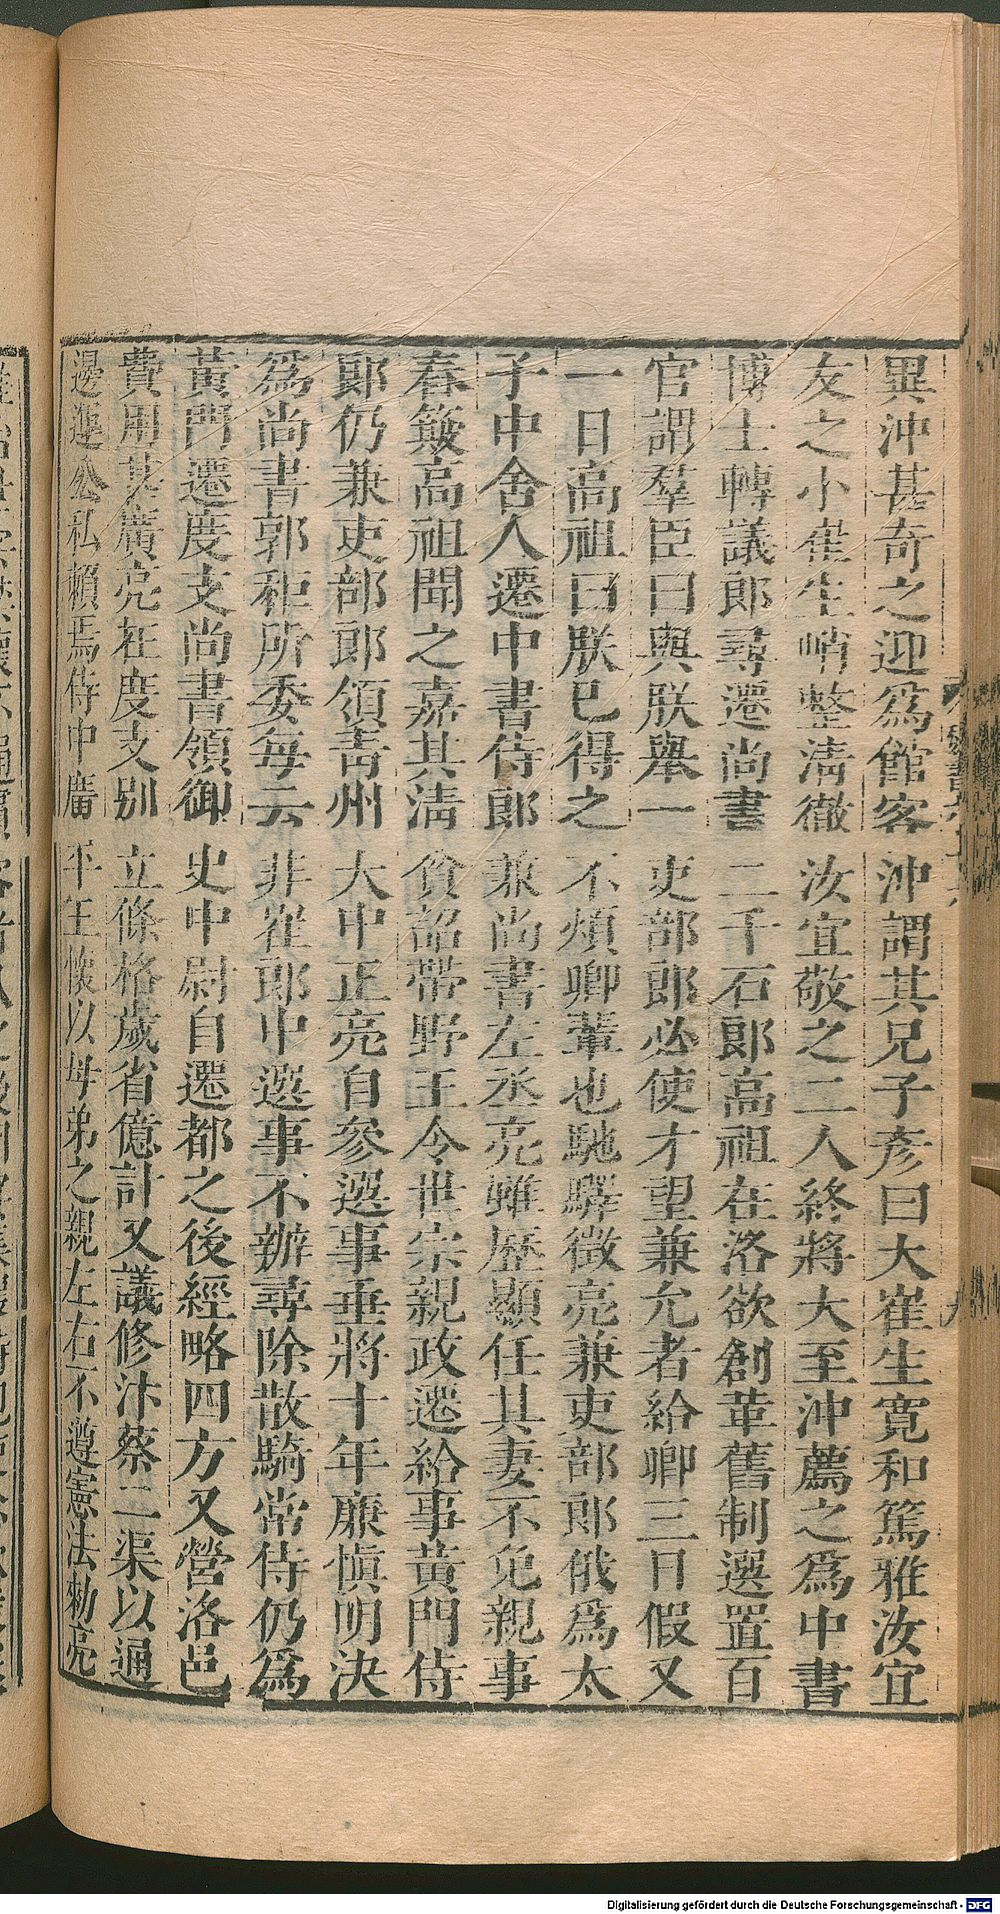 異沖甚奇之迎為館客沖謂其兄子彥曰大崔生寬和篤雅汝宜
友之小崔生峭整清徹汝宜敬之二人終將大至沖薦之為中書
博士轉議郎尋遷尚書二千石郎高祖在洛欲創革舊制選置百
官謂羣臣曰與朕舉一吏部郎必使才望兼允者給卿三日假又
一日高祖曰朕已得之不煩卿輩也馳驛徵亮兼吏部郎俄為太
子中舍人遷中書侍郎兼尚書左丞亮雖歷顯任其妻不免親事
舂簸高祖聞之嘉其清貧詔帶野王令世宗親政遷給事黃門侍
郎仍兼吏部郎領青州大中正亮自參選事垂將十年廉慎明決
為尚書郭祚所委每云非崔郎中選事不辦尋除散騎常侍仍為
黃門遷度支尚書領御史中尉自遷都之後經略四方又營洛邑
費用甚廣亮在度支別立條格歲省億計又議修汴蔡二渠以通
邊運公私賴焉侍中廣平王懷以母弟之親左右不遵憲法勑亮
Digitalisierung gefördert durch die Deutsche Forschungsgemeinschaft - DFG